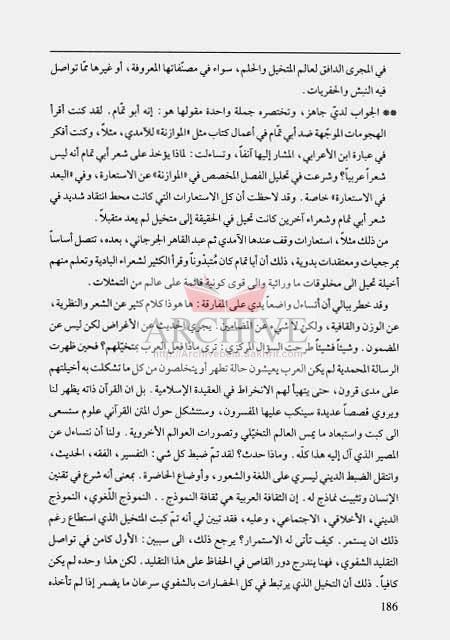 في المجرى الدافق لعالم المتخيل والحلم، سواء في مصنّفاتها المعروفة، أو غيرها ممّا تواصل
فيه النبش والحفريات.
** الجواب لديّ جاهز، وتختصره جملة واحدة مقولها هو: إنه أبو تمّام. لقد كنت أقرأ
الهجومات الموجّهة ضد أبي تمّام في أعمال كتاب مثل «الموازنة» للآمدي، مثلاً، وكنت أفكر
في عبارة ابن الأعرابي، المشار إليها آنفاً، وتساءلت: لماذا يؤخذ على شعر أبي تمام أنه ليس
شعراً عربياً؟ وشرعت في تحليل الفصل المخصص في «الموازنة» عن الاستعارة، وفي «البعد
في الاستعارة» خاصة. وقد لاحظت أن كل الاستعارات التي كانت محط انتقاد شديد في
شعر أبي تمام وشعراء آخرين كانت تحيل في الحقيقة إلى متخيل لم يعد متقبلاً.
من ذلك مثلاً، استعارات وقف عندها الآمدي ثم عبد القاهر الجرجاني، بعده، تتصل أساساً
بمرجعيات ومعتقدات بدوية، ذلك أن أبا تمام كان مُتبدّوناً وقرأ الكثير لشعراء البادية وتعلم منهم
أخيلة تحيل إلى مخلوقات ما ورائية وإلى قوى كونية قائمة على عالم من التمثلات.
وقد خطر ببالي أن أتساءل واضعاً يدي على المفارقة: ها هوذا كلام كثير عن الشعر والنظرية،
عن الوزن والقافية، ولكن لا شيء عن المضامين. يجري الحديث عن الأغراض لكن ليس عن
المضمون. وشيئاً فشيئاً طرحت السؤال المركزي: ترى ماذا فعل العرب بمتخيّلهم؟ فحين ظهرت
ARCHIVE
http://Archivebeta.Sakhrit.com
الرسالة المحمدية لم يكن العرب يعيشون حالة تطهر أو يتخلصون من كل ما تشكلت به أخيلتهم
على مدى قرون، حتى يتهيأ لهم الانخراط في العقيدة الإسلامية. بل ان القرآن ذاته يظهر لنا
ويروي قصصاً عديدة سينكب عليها المفسرون، وستتشكل حول المتن القرآني علوم ستسعى
الى كبت واستبعاد ما يمس العالم التخيّلي وتصورات العوالم الأخروية. ولنا أن نتساءل عن
المصير الذي آل إليه هذا كلّه. وماذا حدث؟ لقد تمّ ضبط كل شي: التفسير، الفقه، الحديث،
وانتقل الضبط الديني ليسري على اللغة والشعور، وأوضاع الحاضرة. بمعنى أنه شرع في تقنين
الإنسان وتثبيت نماذج له. إن الثقافة العربية هي ثقافة النموذج.. النموذج اللّغوي، النموذج
الديني، الأخلاقي، الاجتماعي، وعليه، فقد تبين لي أنه تمّ كبت المتخيل الذي استطاع رغم
ذلك ان يستمر. كيف تأتى له الاستمرار؟ يرجع ذلك، الى سببين: الأول كامن في تواصل
التقليد الشفوي، فهنا يندرج دور القاص في الحفاظ على هذا التقليد. لكن هذا وحده لم يكن
كافياً. ذلك أن التخيل الذي يرتبط في كل الحضارات بالشفوي سرعان ما يضمر إذا لم تأخذه
186